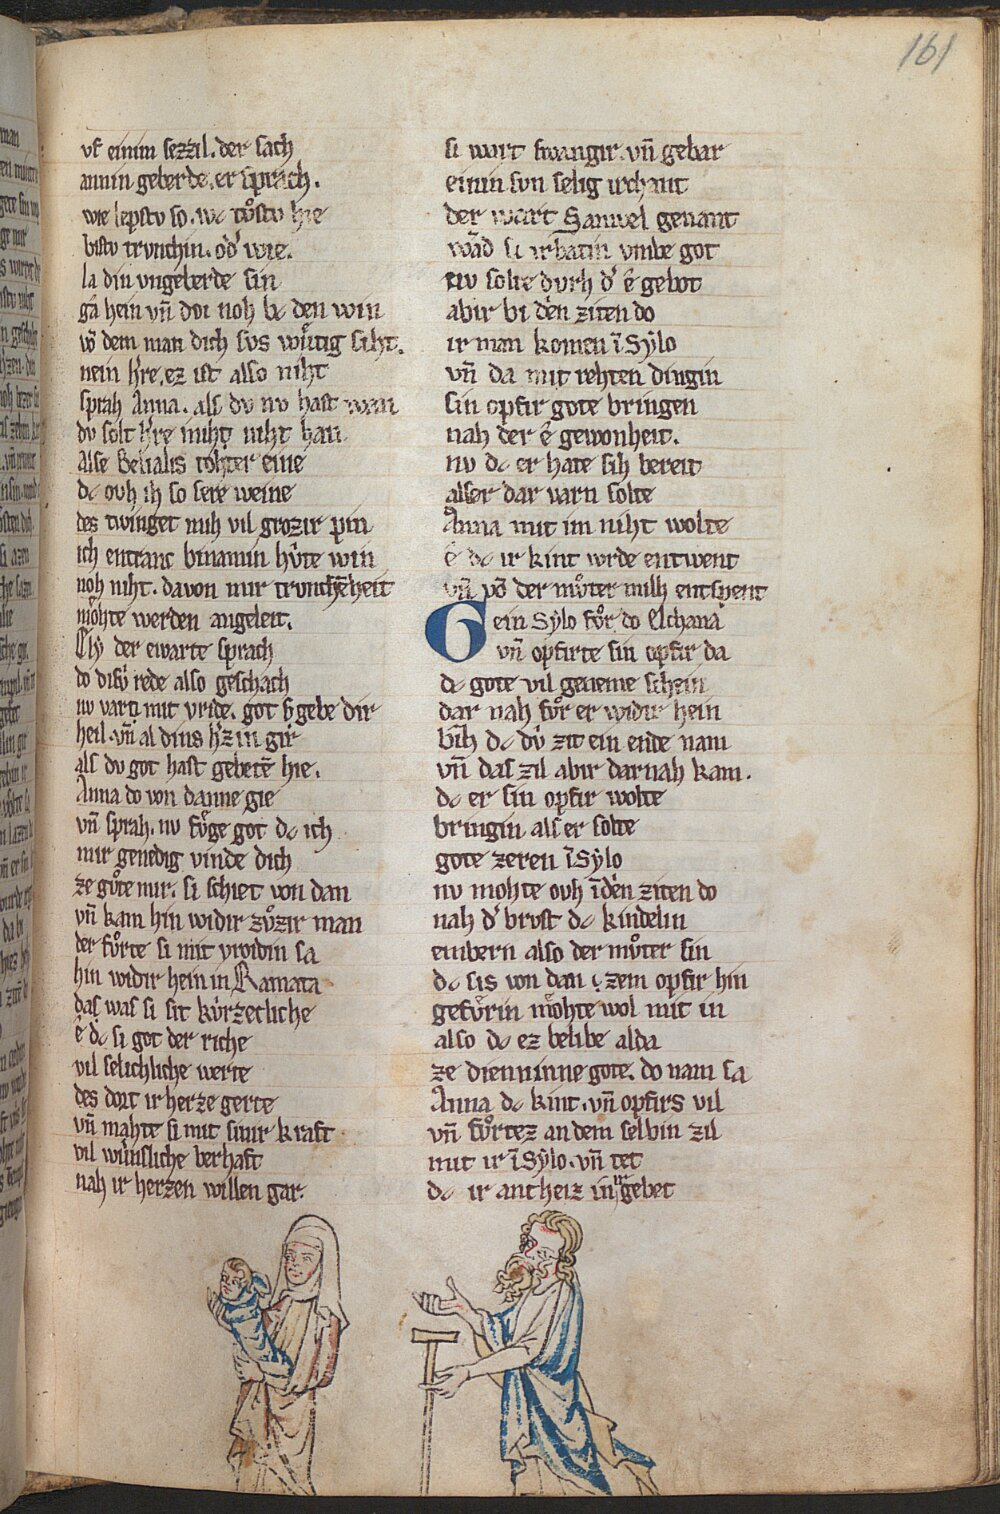 161
vf einim sezzil. der sach
annin geberde. er sprach.
wie lepstv so. wc tv̊stv hie
bistv trvnchin. od' wie.
la din vngeberde sin
ga hein vn̄ dov noh bc den win
vō dem man dich svs wv̊tig siht.
nein h're. ez ist also niht
sprah Anna. als dv nv hast wan
dv solt h're mih niht han
Alse Belialis tohter eine
dc ovh ih so sere weine
des twinget mih vil grozir pin
ich entranc binamin hv̂te win
noh niht. davon mir trvnchēheit
mo̊hte werden angeleit.
Ely der ewarte sprach
do disv̂ rede also geschach
nv var mit vride. got h' gebe dir
heil. vn̄ al dins h'zin gir
als dv got hast gebetē hie.
Anna do von danne gie
vn̄ sprah. nv fv̊ge got dc ich
mir genedig vinde dich
ze gv̊te mir. si schiet von dan
vn̄ kam hin widir zv̊zir man
der fv̊rte si mit vroidin sa
hin widir hein in Ramata
das was si sit kv̊rzecliche
ê dc si got der riche
vil selichliche werte
des dort ir herze gerte
vn̄ mahte si mit sinir kraft
vil wv̊nsliche berhaft
nah ir herzen willen gar.
si wart swangir. vn̄ gebar
einin svn selig irchant
der wart Samvel genant
wād si irbatin vmbe got
nv solte dvrh d' ê gebot
abir bi den ziten do
ir man komen ī Sylo
vn̄ da mit rehten dingin
sin opfir gote bringen
nah der ê gewonheit.
nv dc er hate sih bereit
alser dar varn solte
Anna mit im niht wolte
ê dc ir kint wrde entwent
vn̄ vō der mv̊ter milh entspent
Gein Sylo fv̊r do Elchana
vn̄ opfirte sin opfir da
dc gote vil geneme schein
dar nah fv̊r er widir hein
bih dc dv̂ zit ein ende nam
vn̄ das zil abir darnah kam.
dc er sin opfir wolte
bringin als er solte
gote zeren ī Sylo
nv mohte ovh ī den ziten do
nah d' brvst dc kindelin
enbern also der mv̊ter sin
dc sis von dan zem opfir hin
gefv̊rin mo̊hte wol mit in
also dc ez belibe alda
ze dieninne gote. do nam sa
Anna dc kint. vn̄ opfirs vil
vn̄ fv̊rtez an dem selbin zil
mit ir ī Sylo. vn̄ tet
dc ir antheiz in ir gebet